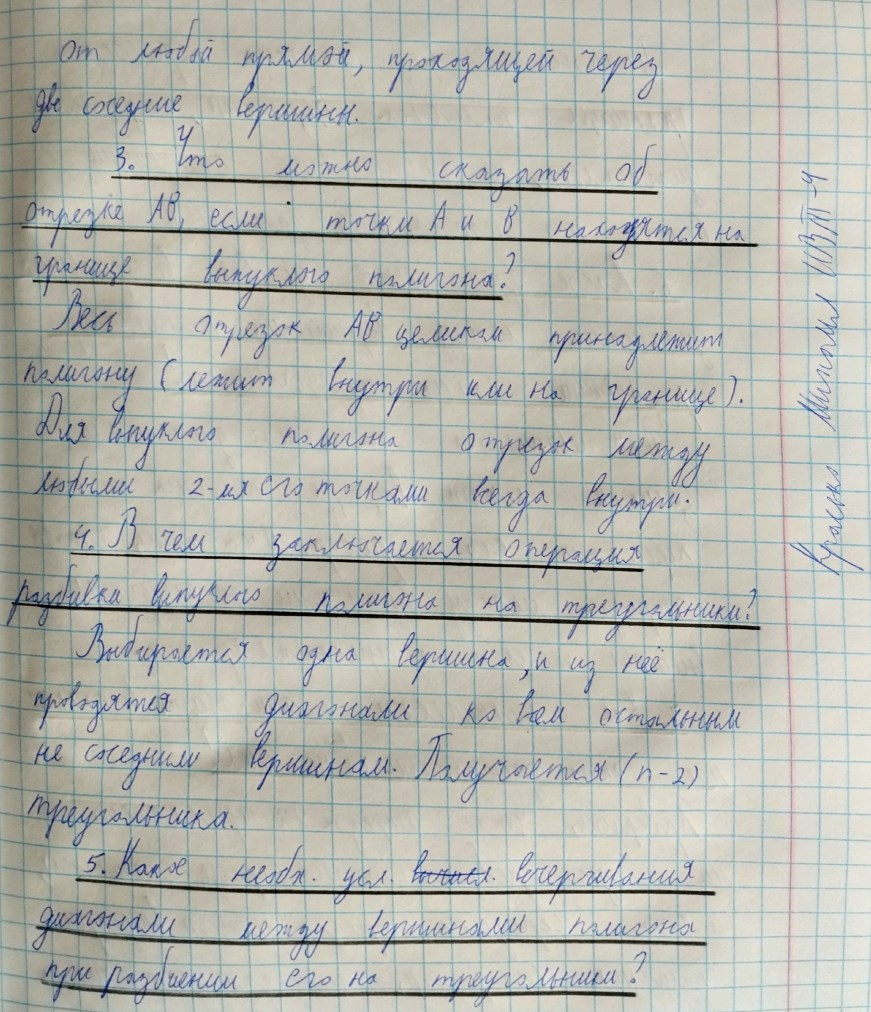 от любой прямой, проходящей через
две соседние вершины.
3. Что можно сказать об
отрезке АВ, если точки А и В находятся на
границе выпуклого полигона?
Весь отрезок АВ целиком принадлежит
полигону (лежит внутри или на границе).
Для выпуклого полигона отрезок между
любыми 2-мя его точками всегда внутри.
4. В чем заключается операция
разбивки выпуклого полигона на треугольники?
Выбирается одна вершина, и из неё
проводятся диагонали ко всем остальным
не соседним вершинам. Получается (n-2)
треугольника.
5. Какое необх. усл. вычерчивания
диагонали между вершинами полигона
при разбиении его на треугольники?
ИВТ-4